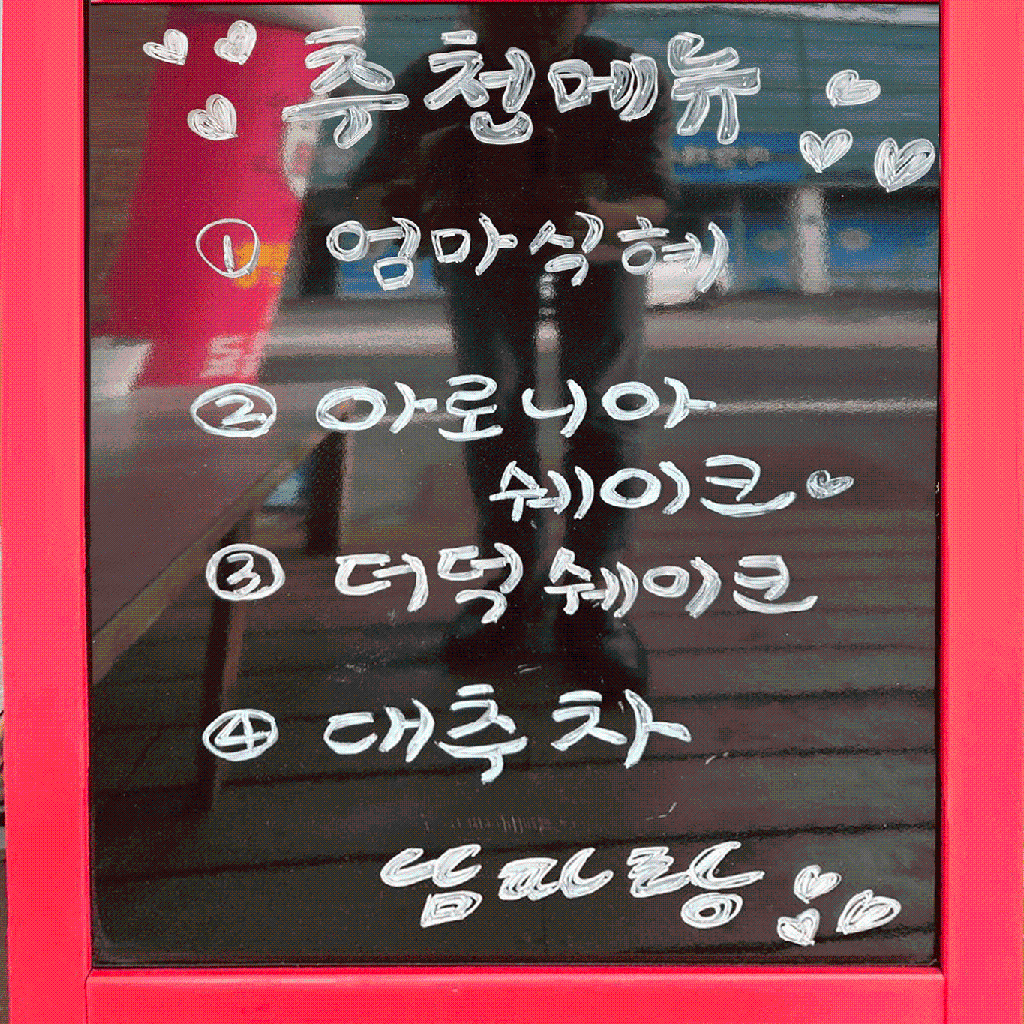 추천메뉴
① 엄마식혜
② 아로니아
쉐이크
③ 더덕쉐이크
④ 대추차
남파랑